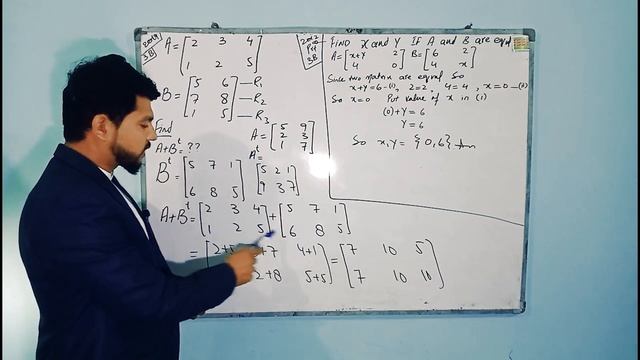 2019 3B
A = [2 3 4
1 2 5]
B = [5 6] — R1
[7 8] — R2
[1 5] — R3
Find
A+B^t = ??
A = [5 9
2 3
1 7]
A^t =
B^t = [5 7 1
6 8 5]
[5 2 1
9 3 7]
A+B^t = [2 3 4
1 2 5] + [5 7 1
6 8 5]
= [2+5 +7 4+1
2+8 5+5] = [7 10 5
7 10 10]
3B
FIND x and Y IF A and B are equal
A = [x+Y 2
4 0] B = [6 2
4 x]
Since two matrix are equal So
x+Y=6-(1), 2=2, 4=4, x=0
So x=0 Put value of x in (1)
(0)+Y=6
Y=6
So x,Y = {0,6} Ans